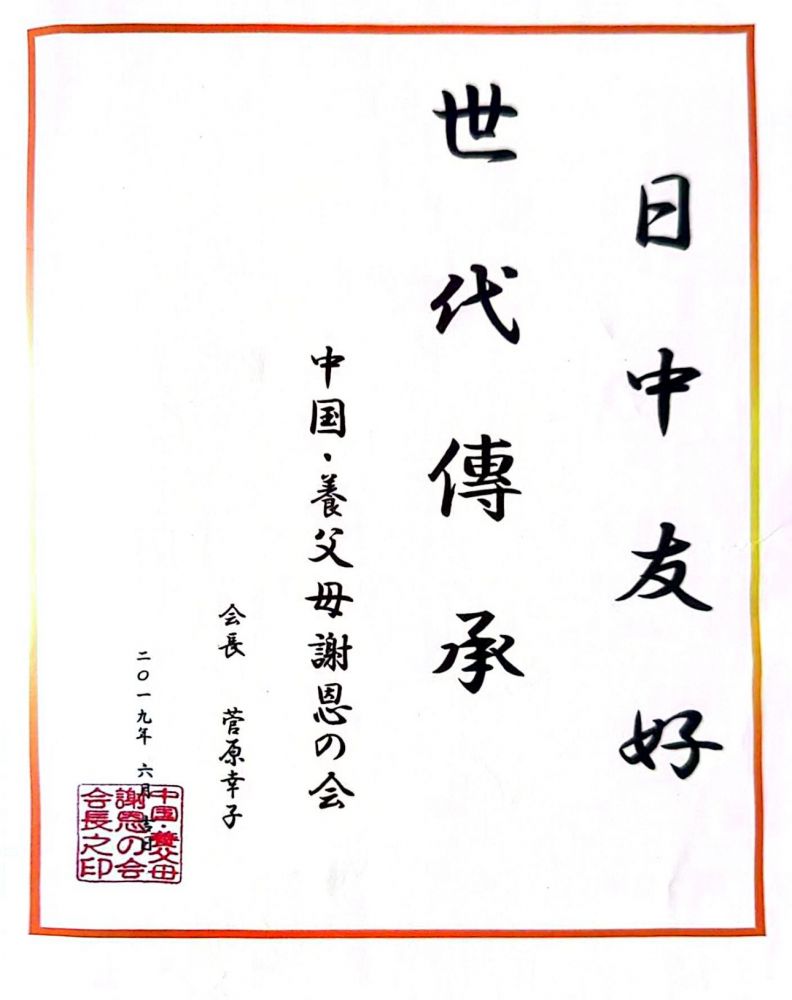 日中友好
世代傳承
中国・養父母謝恩の会
会長 菅原幸子
二〇一九年 六月 吉日
中国・養父母
謝恩の会
会長之印